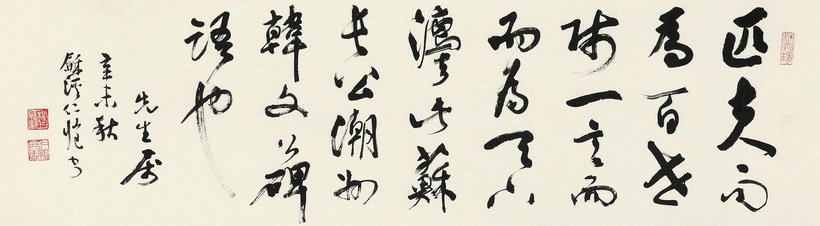 匹夫而
為百世
師一言而
而為天下
灋此蘇
長公潮州
韓文公碑
語也
先生屬
辛未秋
龢溪仁愷書